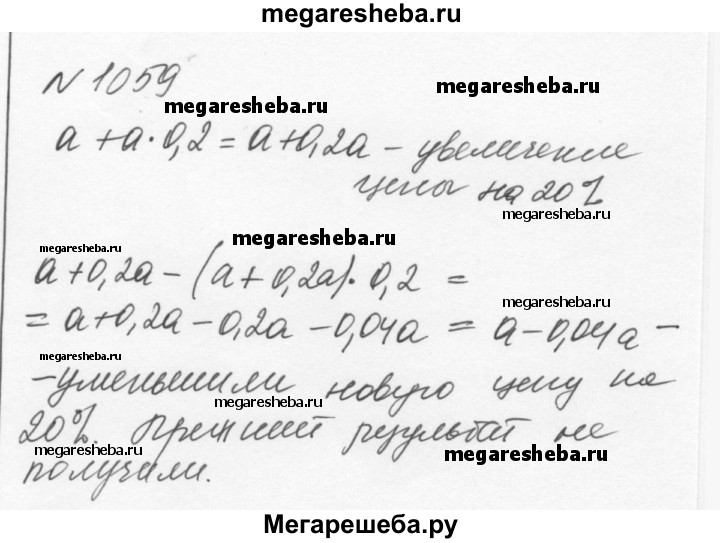 megaresheba.ru
N 1059
megaresheba.ru
megaresheba.ru
a + a · 0,2 = a + 0,2a – увеличение
цены на 20%
megaresheba.ru
megaresheba.ru
megaresheba.ru
a + 0,2a – (a + 0,2a) · 0,2 =
megaresheba.ru
= a + 0,2a – 0,2a – 0,04a = a – 0,04a –
megaresheba.ru
– уменьшили новую цену на
megaresheba.ru
20%. Прежний результат не
megaresheba.ru
megaresheba.ru
получили.
Мегарешеба.ру